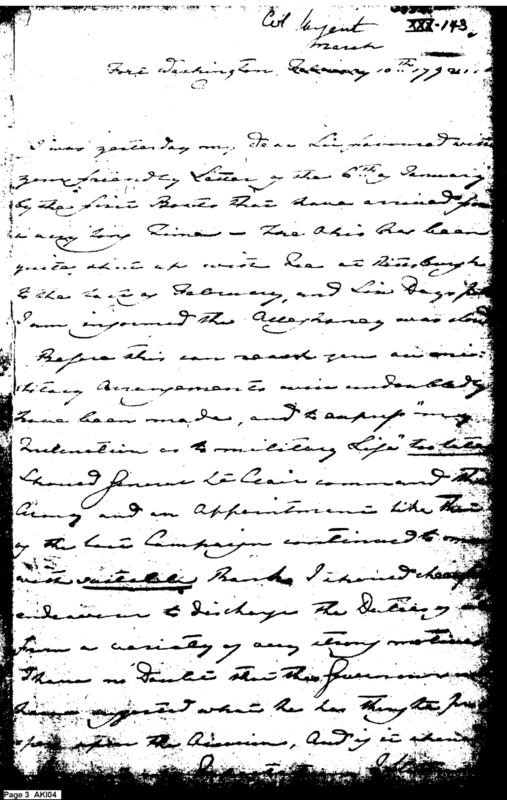 Col Sargent
XXX-143.
March
Fort Washington February 10th 179
I was yesterday my Dear Sir favoured with
your friendly Letter of the 6th of January
by the first Boats that have arrived for
a very long Time – the Ohio has been
quite shut up with Ice at Pittsburgh
to the last of February, and Six Days
I am informed the Alleghaney was
Before this can reach you our mi-
litary Arrangements will undoubtedly
have been made, and to express "my
Inclination as to military Life" too late
Should General St Clair command the
Army and an Appointment like that
of the last Campaign continued to me
with suitable Rank, I should chearfully
endeavour to discharge the Duties of
from a variety of very strong motives
I have no Doubt that the Governour
have what he has thought
upon the Occasion, And if it should
Page 3 AKI04